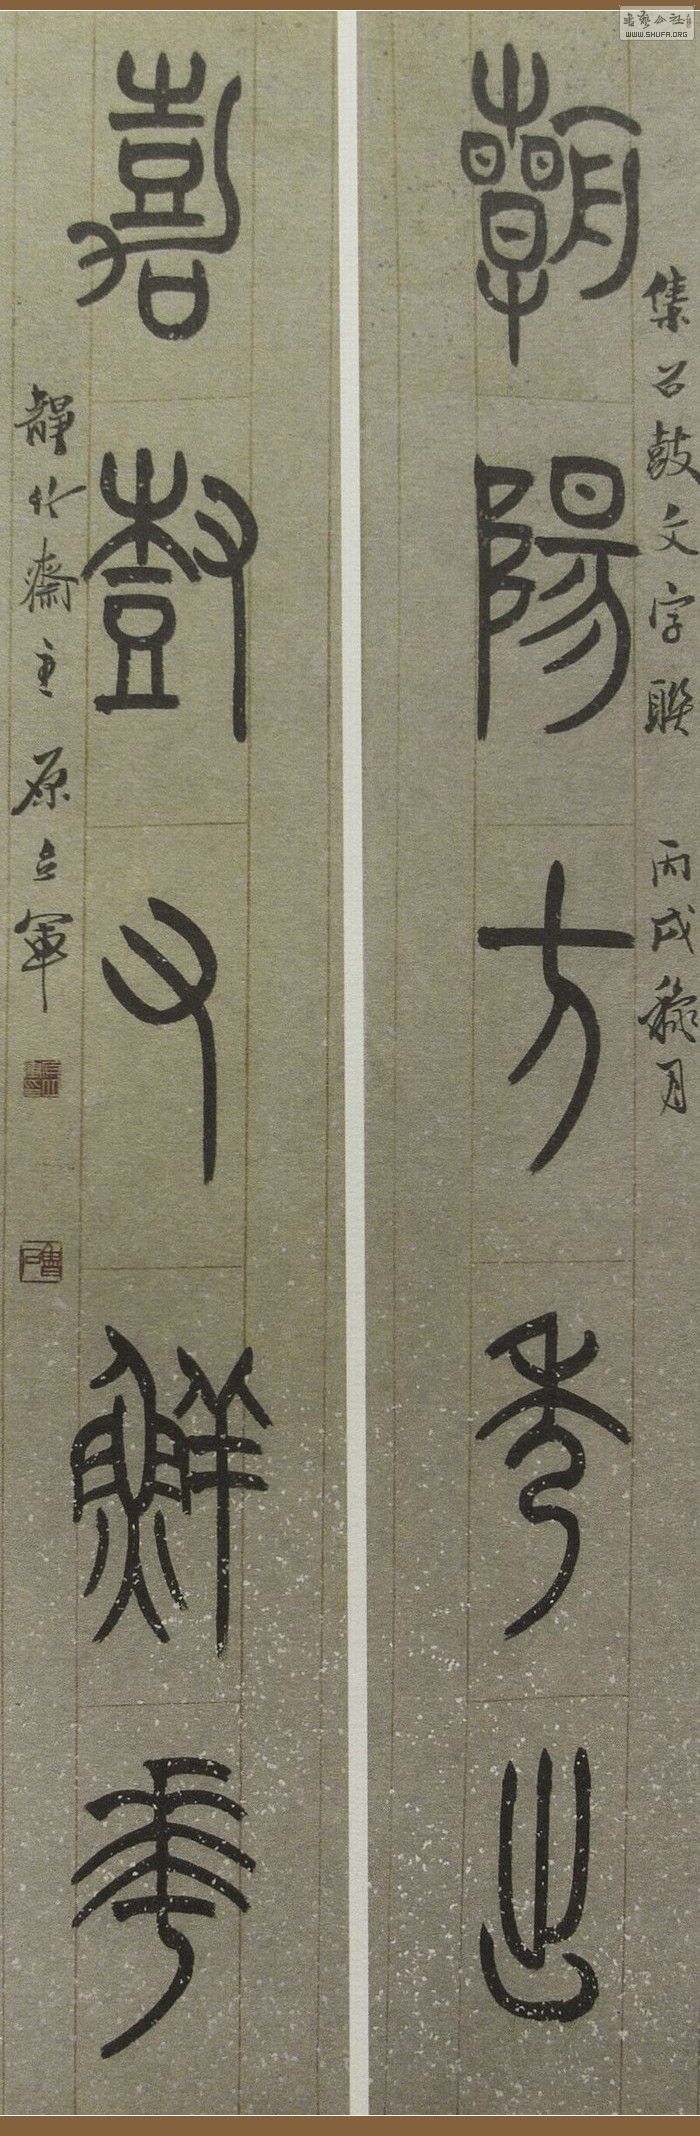 集石鼓文字聯 丙戌穐月
朝陽方秀出
嘉樹又鮮華
靜竹齋主 原立軍
書藝公社
WWW.SHUFA.ORG